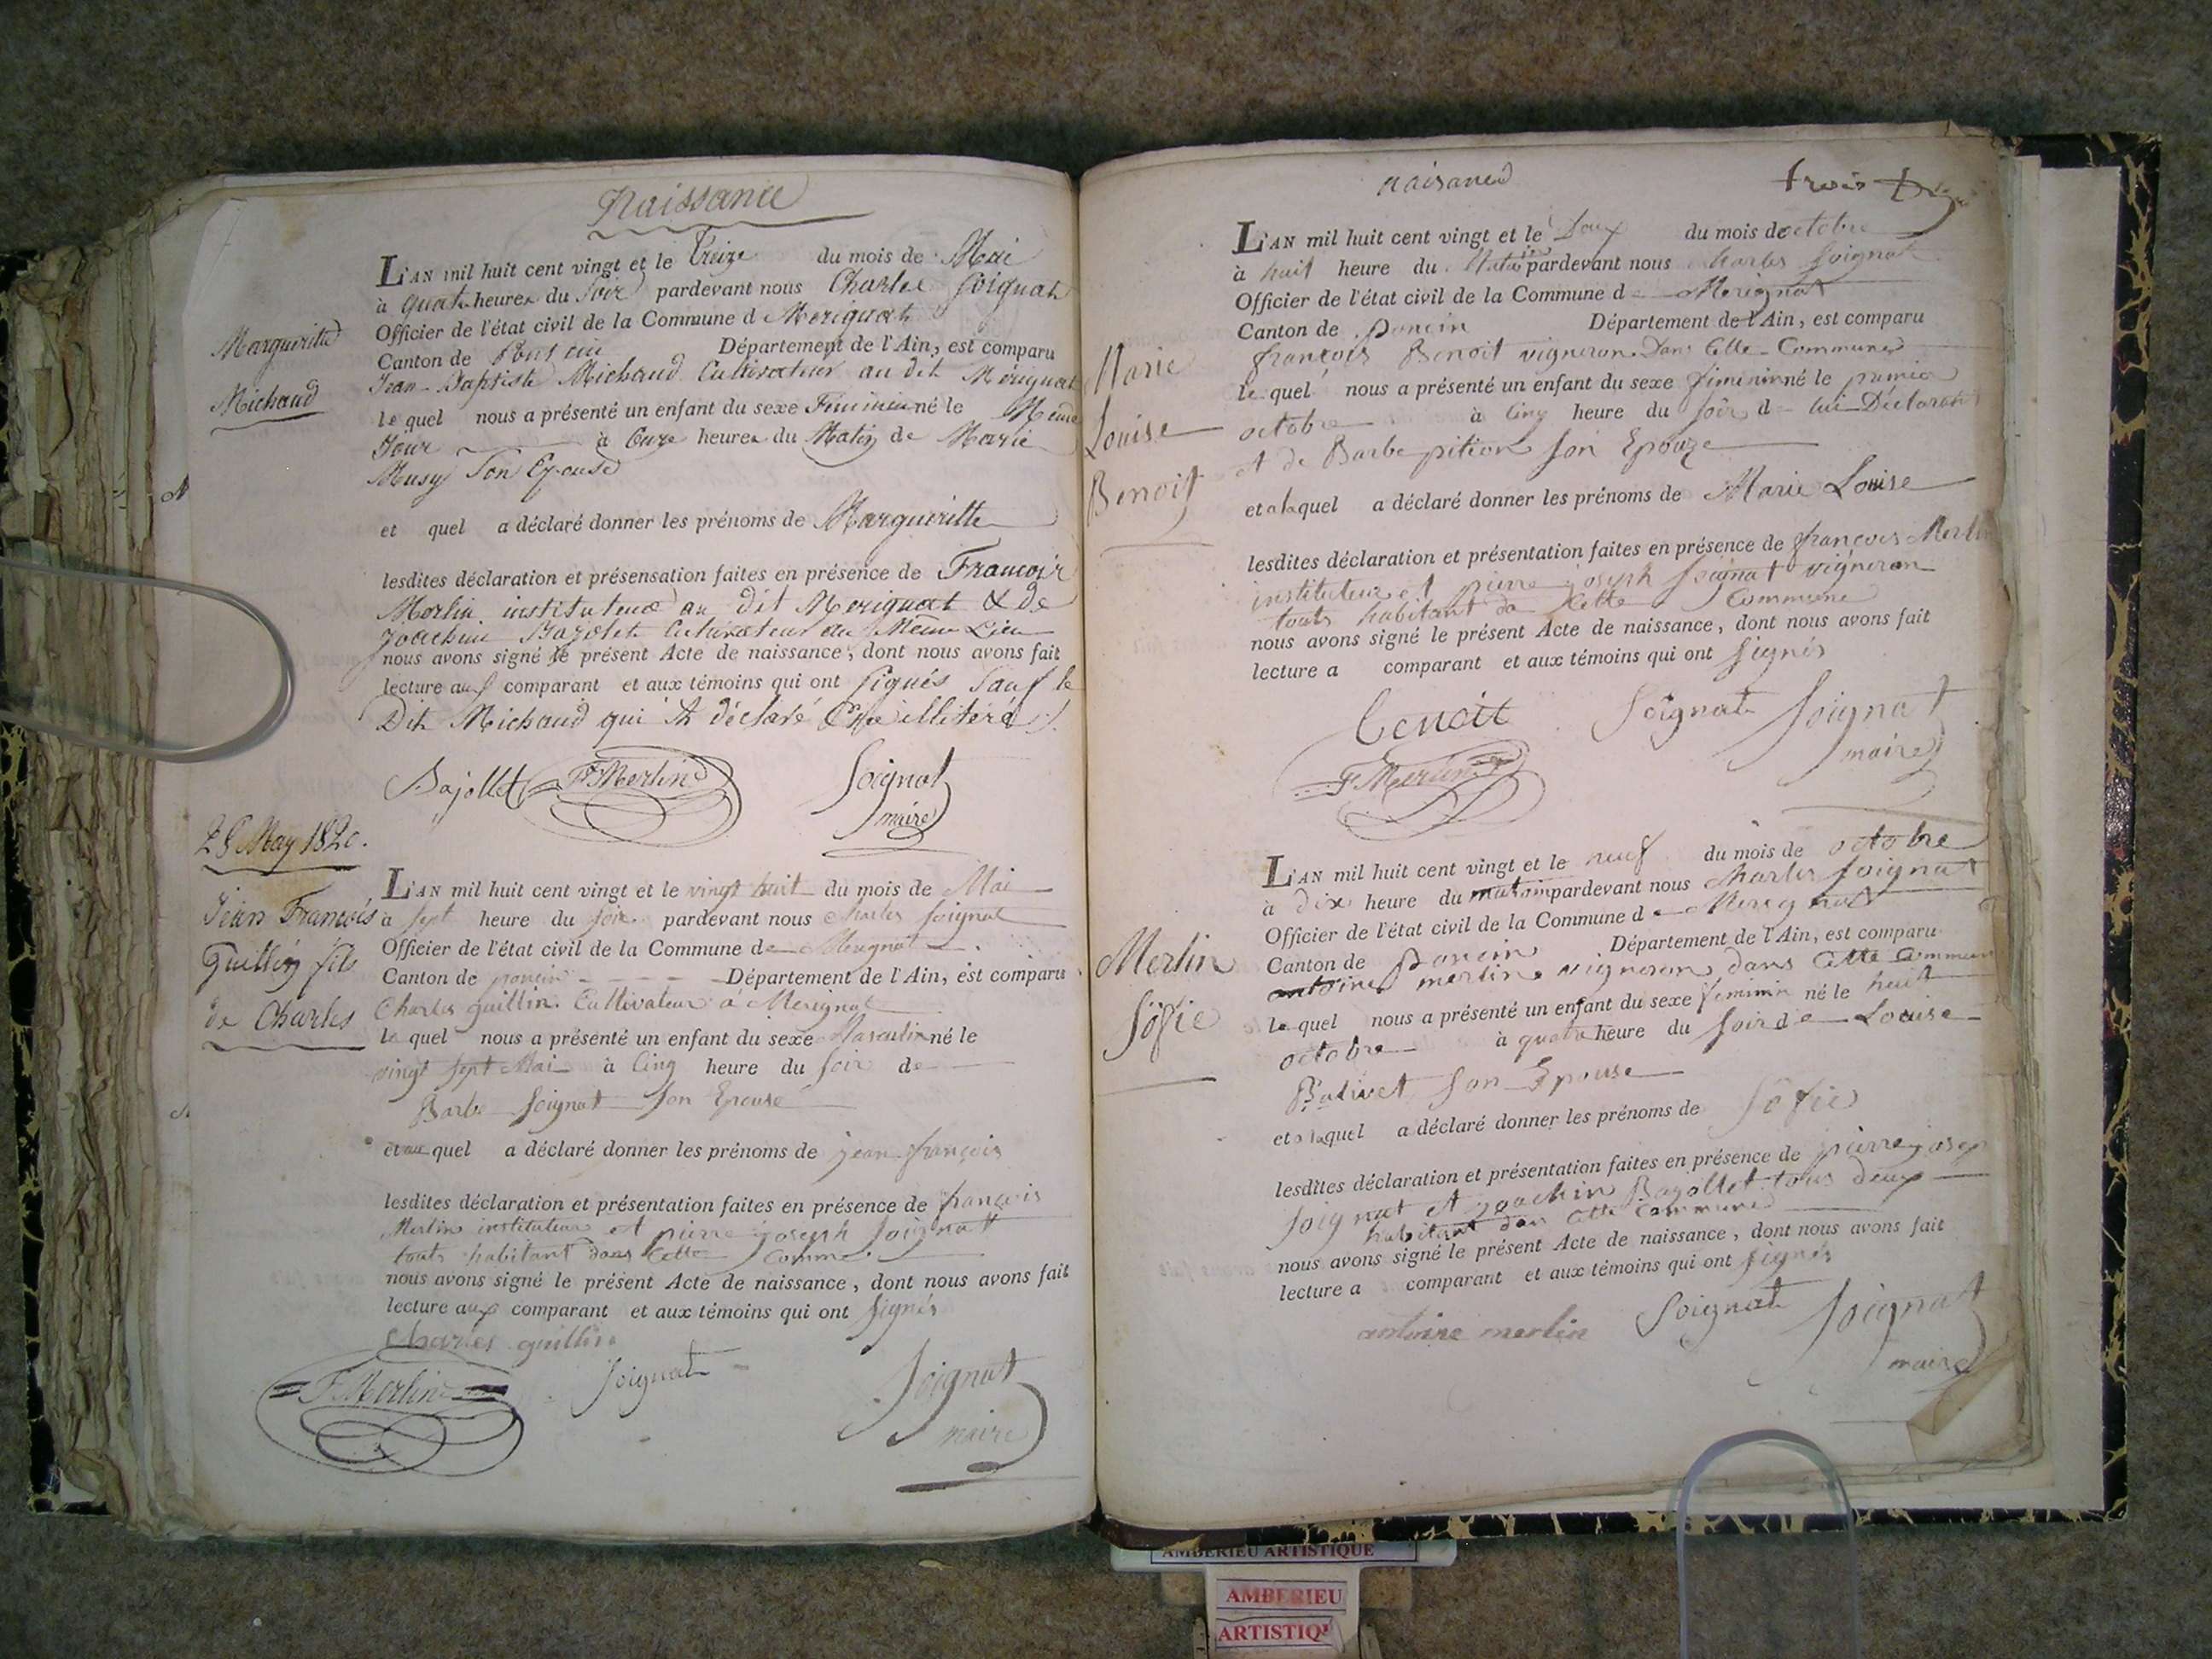 Naissance
Marguerite
Michaud
L'AN mil huit cent vingt et le Treize du mois de Mai
à quatre heures du Soir pardevant nous Charles Soignat
Officier de l'état civil de la Commune d Merignat
Canton de Poncin Département de l'Ain, est comparu
Jean Baptiste Michaud Cultivateur au dit Mérignat
le quel nous a présenté un enfant du sexe Féminin né le Même
Jour à Onze heures du Matin de Marie
Musy Son Epouse
et quel a déclaré donner les prénoms de Margueritte
lesdites déclaration et présensation faites en présence de Francois
Merlin instituteur au dit Merignat & de
Joachim Bazolet Cultivateur au Même Lieu
nous avons signé le présent Acte de naissance, dont nous avons fait
lecture aux comparant et aux témoins qui ont signés Sauf le
Dit Michaud qui A déclaré Etre illitéré
Bajollet F Merlin Soignat
maire
28 May 1820.
Jean François
Guillin fils
de Charles
L'AN mil huit cent vingt et le vingt huit du mois de Mai
à sept heure du soir pardevant nous Charles Soignat
Officier de l'état civil de la Commune de Merignat
Canton de poncin Département de l'Ain, est comparu
Charles guillin Cultivateur à Merignat
le quel nous a présenté un enfant du sexe Masculin né le
vingt sept Mai à Cinq heure du soir de
Barbe Soignat son Epouse
et au quel a déclaré donner les prénoms de jean françois
lesdites déclaration et présentation faites en présence de françois
Merlin instituteur et pierre joseph Soignat
touts habitant dans Cette Comme
nous avons signé le présent Acte de naissance, dont nous avons fait
lecture aux comparant et aux témoins qui ont signés
Charles guillin
F. Merlin Soignat Soignat
maire
naisance
trois
Marie
Louise
Benoit
L'AN mil huit cent vingt et le Deux du mois de octobre
à huit heure du Matin pardevant nous Charles Soignat
Officier de l'état civil de la Commune de Merignat
Canton de Poncin Département de l'Ain, est comparu
françois Benoit vigneron Dans Cette Commune
le quel nous a présenté un enfant du sexe fiminin né le premier
octobre à Cinq heure du soir de lui Déclarant
et de Barbe pition son Epouze
et a laquel a déclaré donner les prénoms de Marie Louise
lesdites déclaration et présentation faites en présence de françois Merlin
instituteur et pierre joseph Soignat vigneron
touts habitant da Cette Commune
nous avons signé le présent Acte de naissance, dont nous avons fait
lecture a comparant et aux témoins qui ont signés
benoit Soignat Soignat
maire
F Merlin
Merlin
Sofie
L'AN mil huit cent vingt et le neuf du mois de octobre
à dix heure du matin pardevant nous Charles Soignat
Officier de l'état civil de la Commune de Merignat
Canton de Poncin Département de l'Ain, est comparu
antoine merlin vigneron dans Cette Commune
le quel nous a présenté un enfant du sexe feminin né le huit
octobre à quatre heure du soir de Louise
Balivet son Epouse
et a laquel a déclaré donner les prénoms de Sofie
lesdites déclaration et présentation faites en présence de pierre josep
Soignat et joachin Bazollet tous deux
habitant dan Cette Commune
nous avons signé le présent Acte de naissance, dont nous avons fait
lecture a comparant et aux témoins qui ont signés
antoine merlin Soignat Soignat
maire
AMBERIEU ARTISTIQUE
AMBERIEU
ARTISTIQ